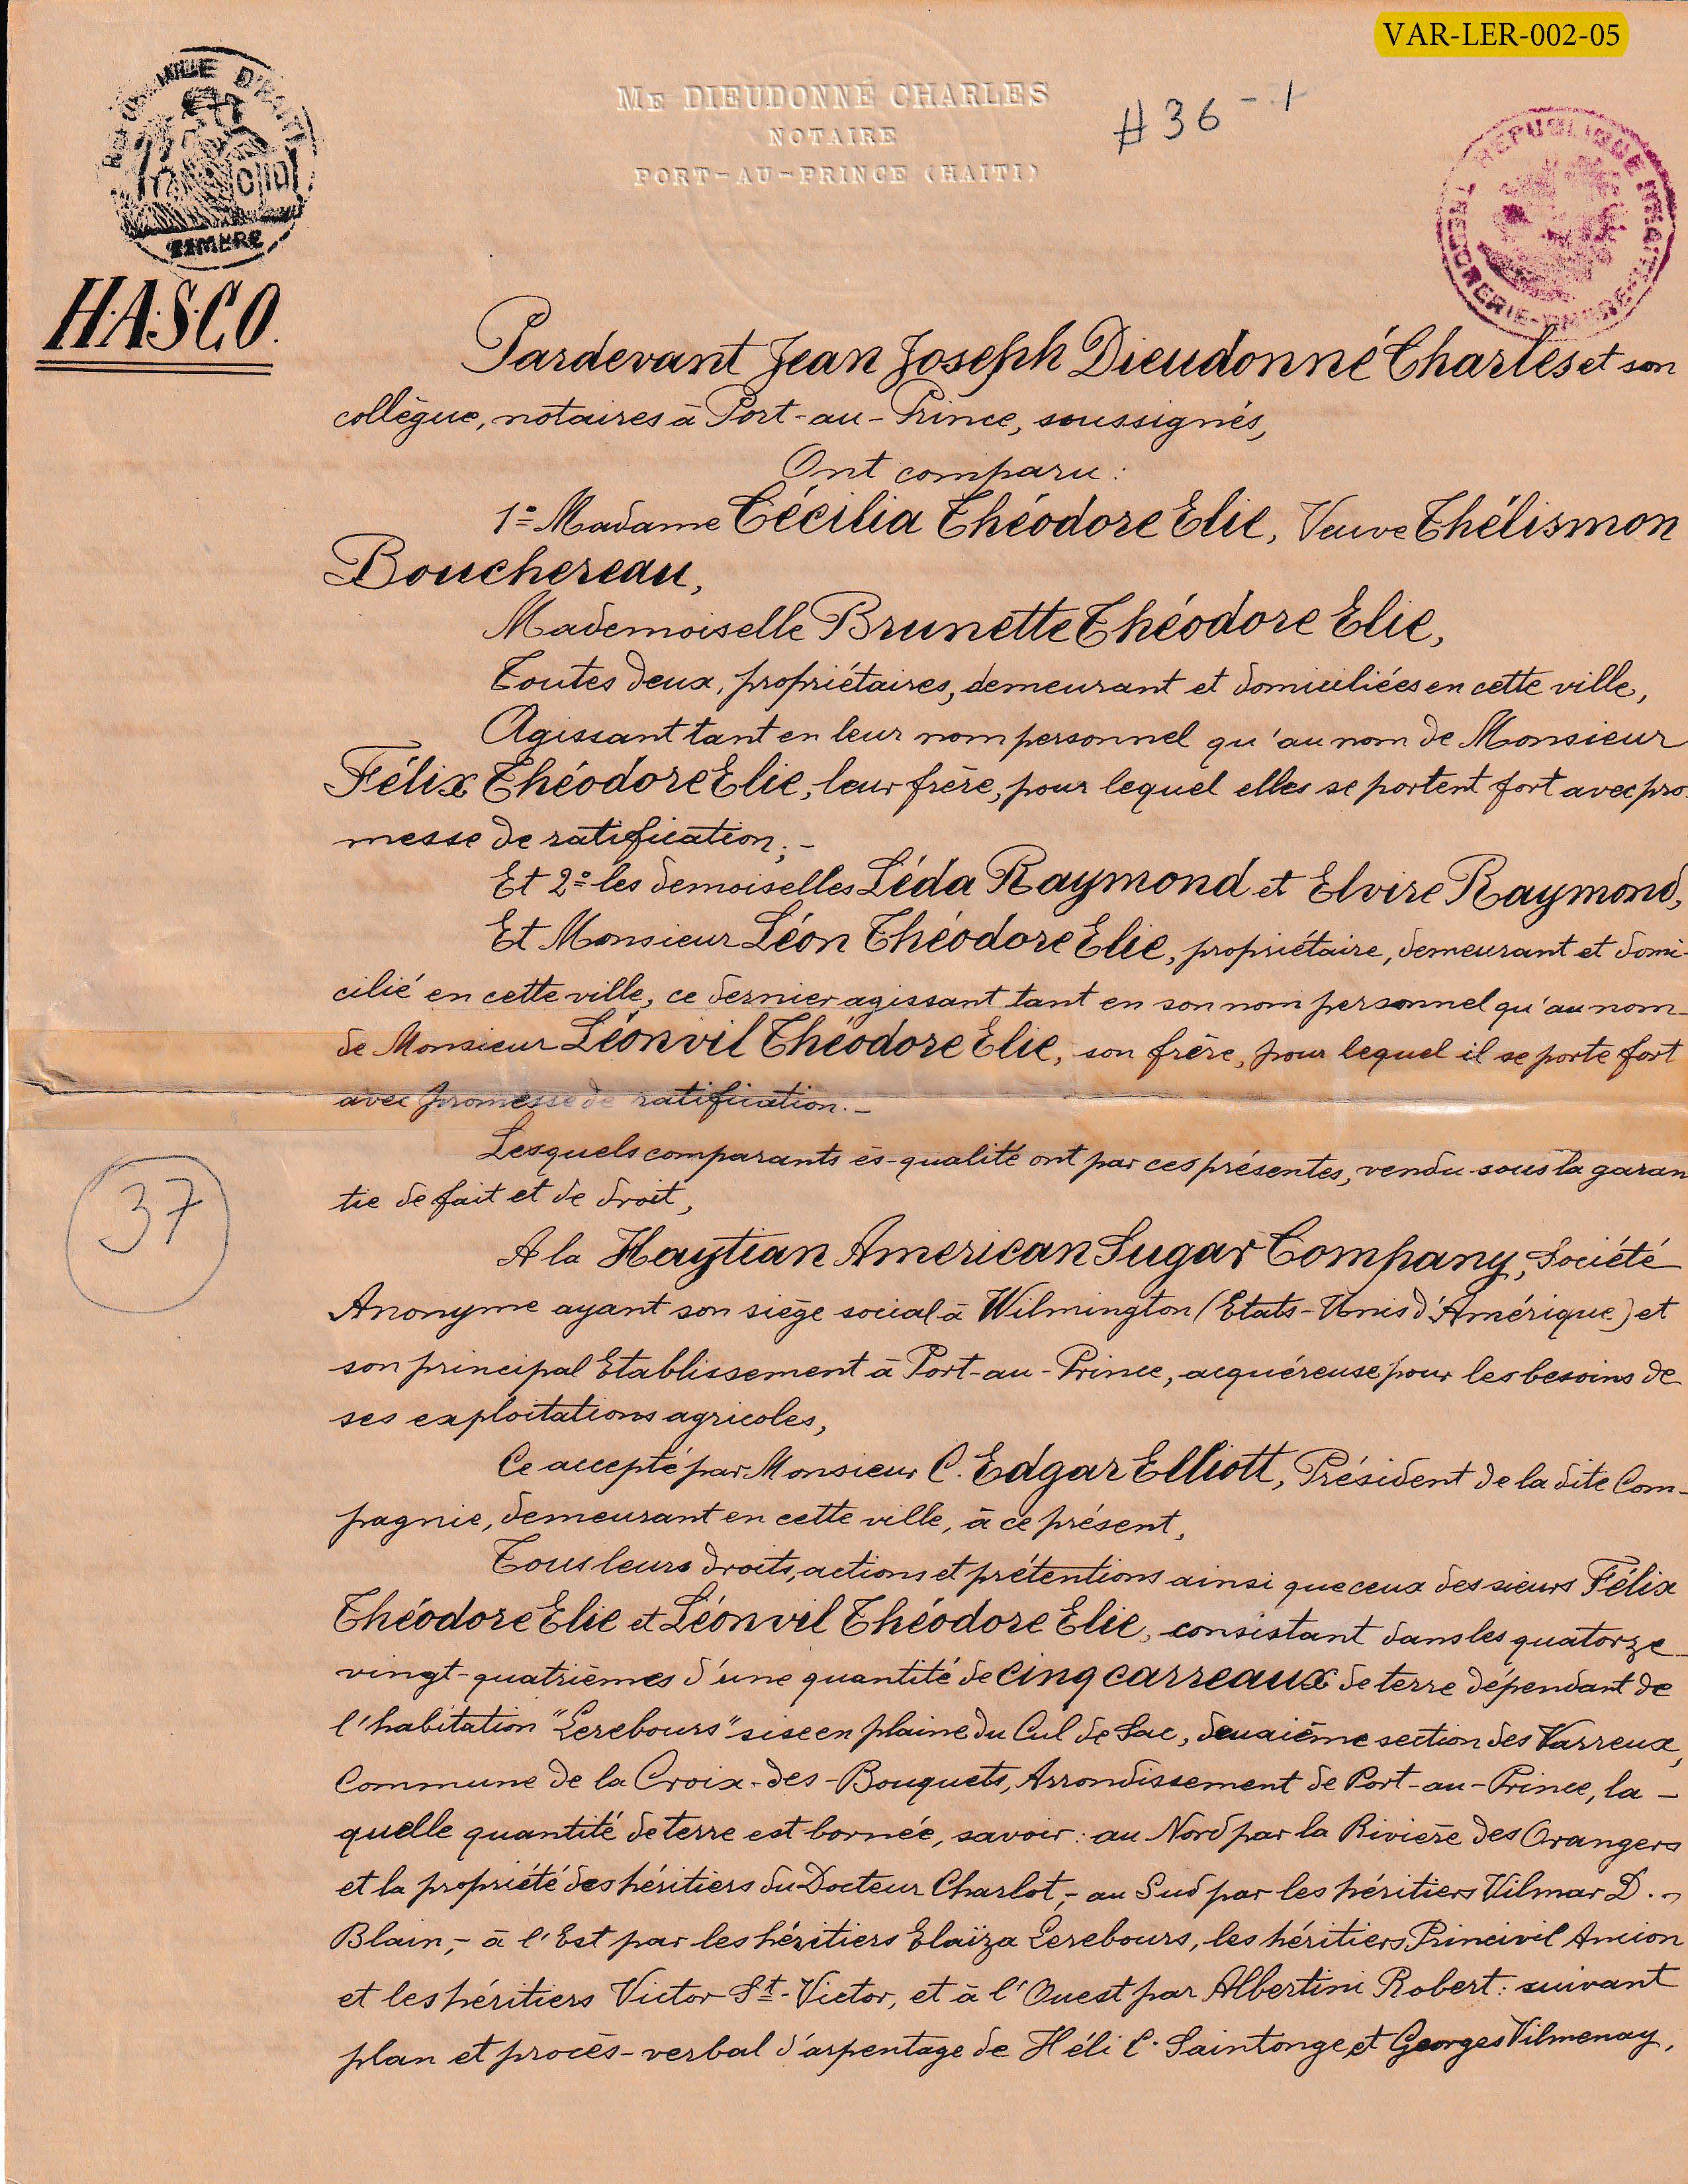 VAR-LER-002-05
ME DIEUDONNÉ CHARLES
NOTAIRE
PORT-AU-PRINCE (HAITI)
#36-1
REPUBLIQUE D'HAITI
TIMBRE
REPUBLIQUE
H.A.S.CO.
Pardevant Jean Joseph Dieudonné Charles et son
collègue, notaires à Port-au-Prince, soussignés,
Ont comparu:
1º Madame Cécilia Théodore Elie, Veuve Thélismon
Bouchereau,
Mademoiselle Brunette Théodore Elie,
Toutes deux, propriétaires, demeurant et domiciliées en cette ville,
Agissant tant en leur nom personnel qu'au nom de Monsieur
Félix Théodore Elie, leur frère, pour lequel elles se portent fort avec pro-
messe de ratification;-
Et 2º les demoiselles Léda Raymond et Elvire Raymond,
Et Monsieur Léon Théodore Elie, propriétaire, demeurant et domi-
cilié en cette ville, ce dernier agissant tant en son nom personnel qu'au nom
de Monsieur Léonvil Théodore Elie, son frère, pour lequel il se porte fort
avec promesse de ratification.-
Lesquels comparants ès-qualité ont par ces présentes, vendu sous la garan
tie de fait et de droit,
37
A la Haytian American Sugar Company, Société
Anonyme ayant son siège social à Wilmington (Etats-Unis d'Amérique) et
son principal Etablissement à Port-au-Prince, acquéreuse pour les besoins de
ses exploitations agricoles,
Ce accepté par Monsieur C. Edgar Elliott, Président de la dite Com-
pagnie, demeurant en cette ville, à ce présent,
Tous leurs droits, actions et prétentions ainsi que ceux des sieurs Félix
Théodore Elie et Léonvil Théodore Elie, consistant dans les quatorze
vingt-quatrièmes d'une quantité de cinq carreaux de terre dépendant de
l'habitation "Lerebours" sise en plaine du Cul de Sac, deuxième section des Varreux,
Commune de la Croix-des-Bouquets, Arrondissement de Port-au-Prince, la-
quelle quantité de terre est bornée, savoir: au Nord par la Rivière des Orangers
et la propriété des héritiers du Docteur Charlot,- au Sud par les héritiers Vilmar D.-
Blain,- à l'Est par les héritiers Elaïza Lerebours, les héritiers Princivil Ancion
et les héritiers Victor St-Victor, et à l'Ouest par Albertini Robert: suivant
plan et procès-verbal d'arpentage de Héli C. Saintonge et Georges Vilmenay,